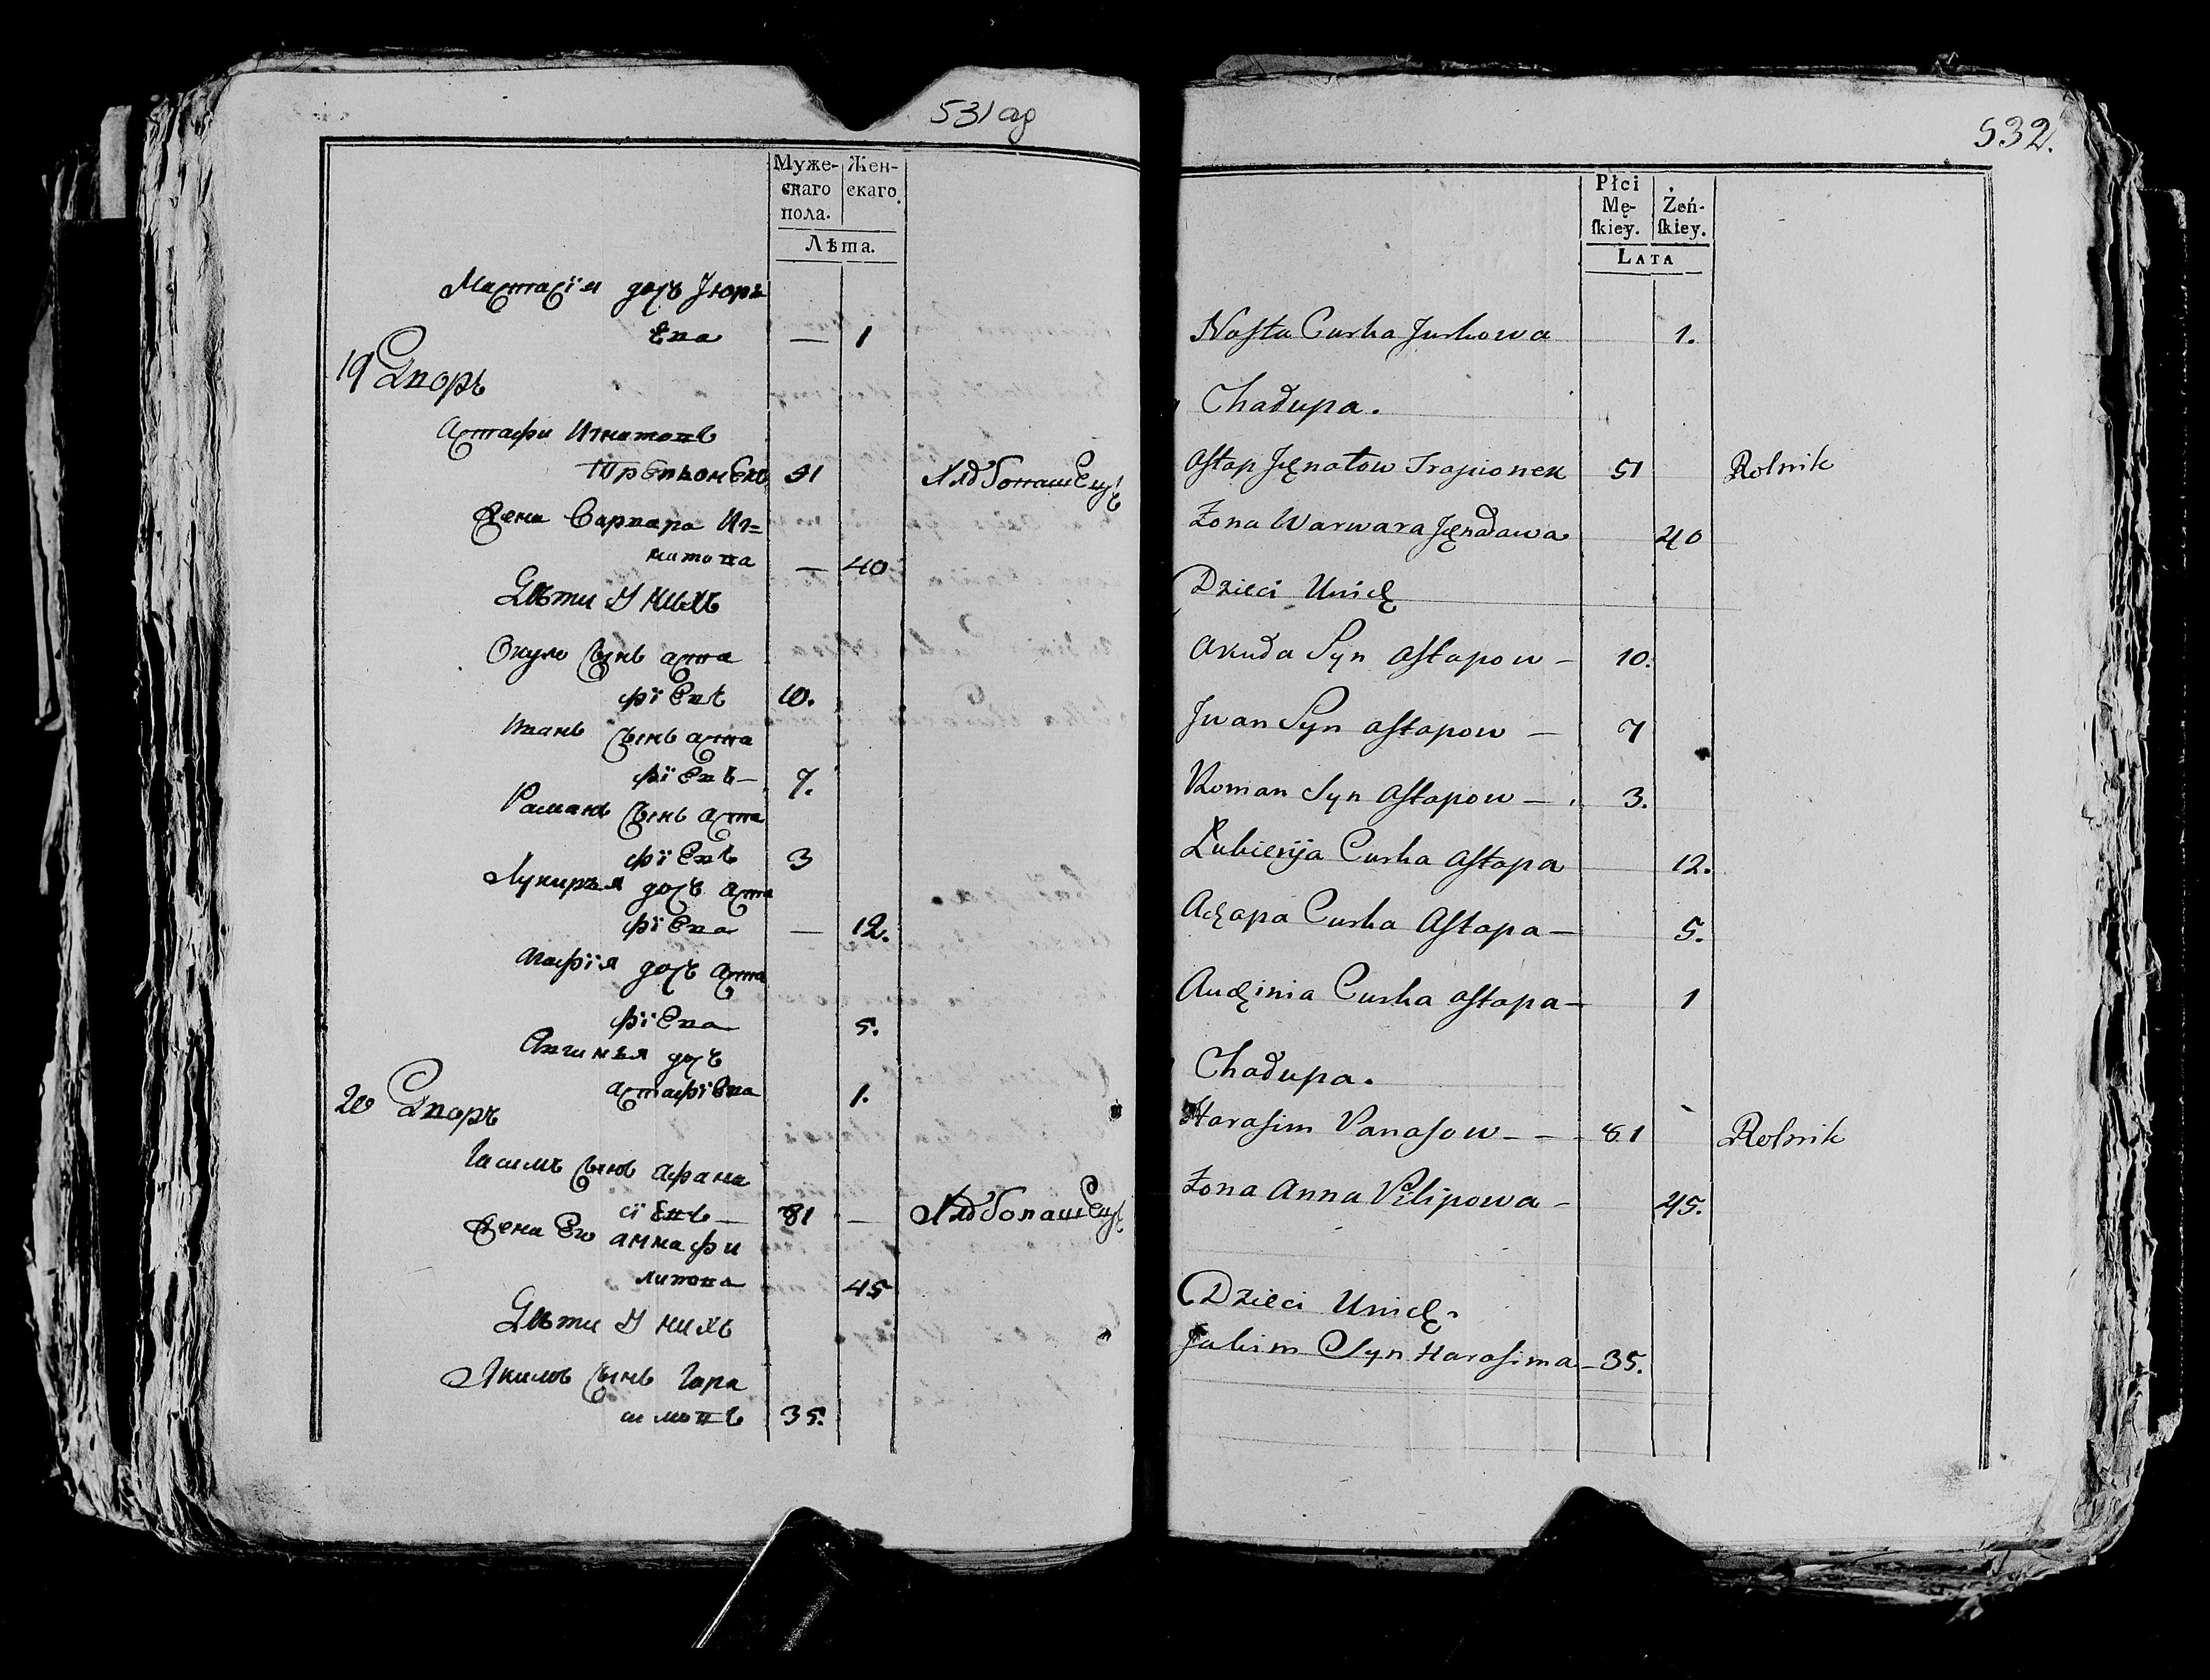 531 об
Муже-
скаго
пола.
Жен-
скаго.
Лѣта.
Мастасїя дочь Јюрь
ева
— 1
19 Дворъ
Астафи Игнатовъ
51
Хлѣбопашецъ
Жена Варвара Иг=
натова
— 40
Дѣти У нихъ
Окуло Сынъ Аста
фїевъ 10.
Иванъ Сынъ Аста
фїевъ — 7.
Раманъ Сынъ Аста
фїевъ 3
Лукирья дочь Аста
фїева — 12.
Агафїя дочь Аста
фїева 5.
Авгинья дочь
Астафїева 1.
20 Дворъ
Гасимъ Сынъ Афана
сїевъ — 81 —
Хлѣбопашецъ
Жена Ево Анна Фи
липова 45
Дѣти У нихъ
Якимъ Сынъ Гара
симовъ 35.
532.
Płci
Mę-
ſkiey.
Żeń-
ſkiey.
Lata
Nasta Curka Jurkowa 1.
Chałupa.
Astap Jgnatow 51 Rolnik
Żona Warwara Jgnatawa 40
Dzieci Unich
Akuła Syn Astapow — 10.
Jwan Syn Astapow — 7
Roman Syn Astapow — 3.
Łukieryja Curka Astapa 12.
Agapa Curka Astapa — 5.
Auginia Curka Astapa — 1
Chałupa.
Harasim Panasow — — 81 Rolnik
Żona Anna Pilipowa — 45.
Dzieci Unich.
Jakim Syn Harasima — 35.